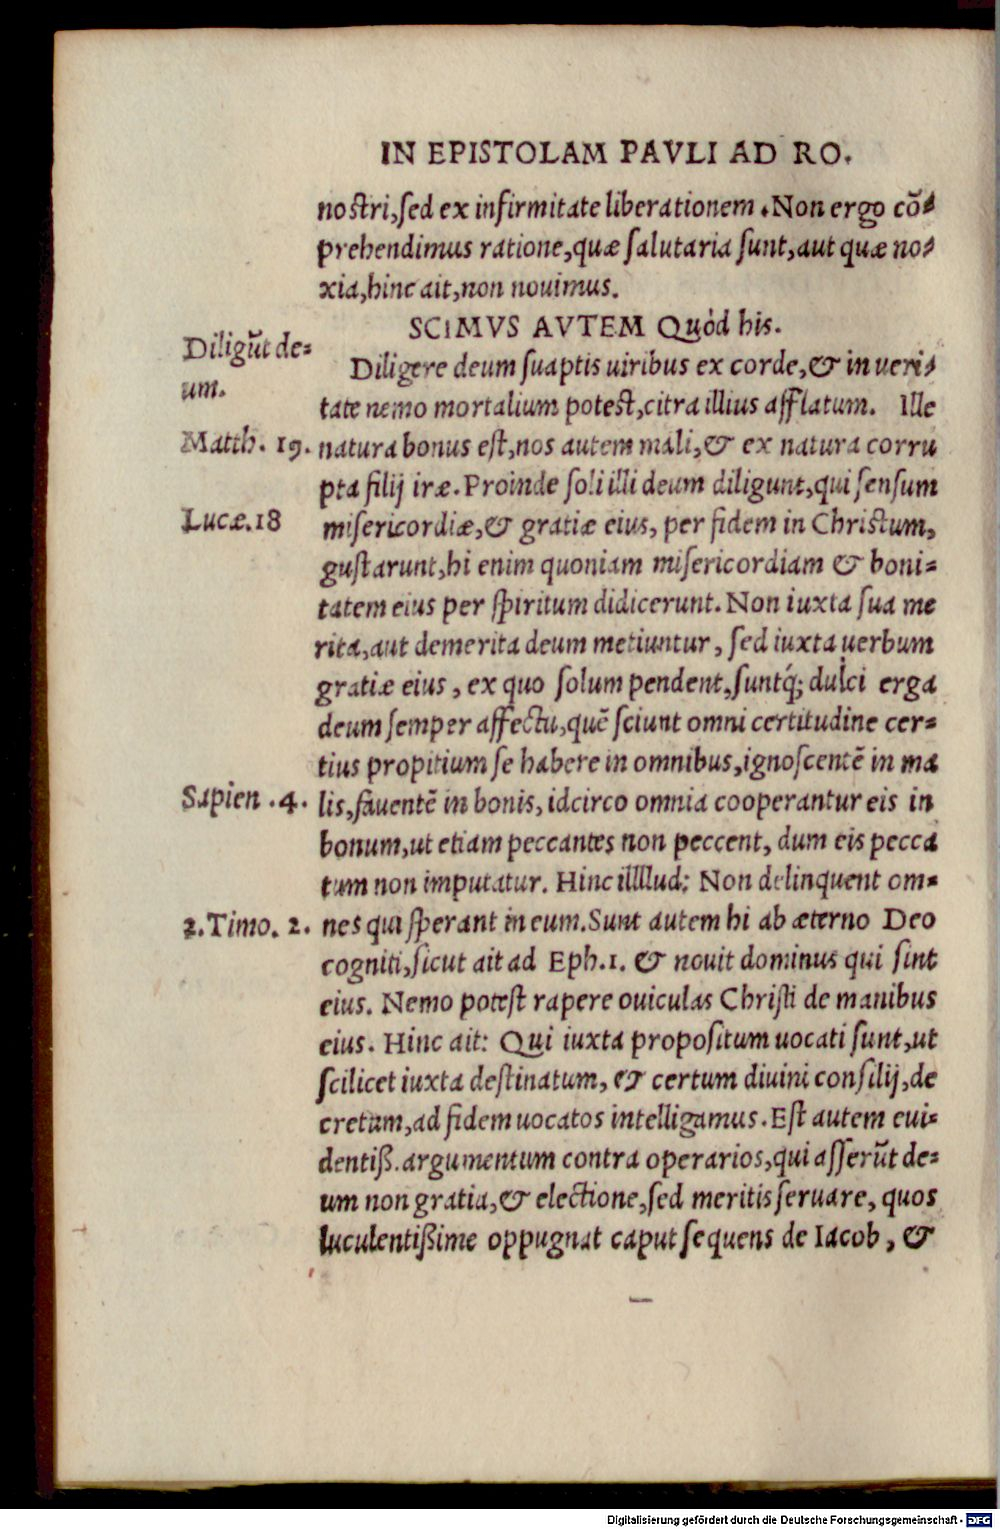 IN EPISTOLAM PAVLI AD RO.
nostri, sed ex infirmitate liberationem. Non ergo cō-
prehendimus ratione, quæ salutaria sunt, aut quæ no-
xia, hinc ait, non nouimus.
SCIMVS AVTEM Quòd his.
Diligūt de-
um.
Diligere deum suaptis uiribus ex corde, & in veri-
tate nemo mortalium potest, citra illius afflatum. Ille
Matth. 19.
natura bonus est, nos autem mali, & ex natura corru
pta filij iræ. Proinde soli illi deum diligunt, qui sensum
Lucæ. 18
misericordiæ, & gratiæ eius, per fidem in Christum,
gustarunt, hi enim quoniam misericordiam & boni-
tatem eius per spiritum didicerunt. Non iuxta sua me
rita, aut demerita deum metiuntur, sed iuxta uerbum
gratiæ eius, ex quo solum pendent, suntq́; dulci erga
deum semper affectu, quē sciunt omni certitudine cer-
tius propitium se habere in omnibus, ignoscentē in ma
Sapien. 4.
lis, fauentē in bonis, idcirco omnia cooperantur eis in
bonum, ut etiam peccantes non peccent, dum eis pecca
tum non imputatur. Hinc illlllud: Non delinquent om-
2. Timo. 2.
nes qui sperant in eum. Sunt autem hi ab æterno Deo
cogniti, sicut ait ad Eph. 1. & nouit dominus qui sint
eius. Nemo potest rapere ouiculas Christi de manibus
eius. Hinc ait: Qui iuxta propositum uocati sunt, ut
scilicet iuxta destinatum, & certum diuini consilij, de
cretum, ad fidem uocatos intelligamus. Est autem eui-
dentiß. argumentum contra operarios, qui asserūt de-
um non gratia, & electione, sed meritis seruare, quos
luculentißime oppugnat caput sequens de Iacob, &
Digitalisierung gefördert durch die Deutsche Forschungsgemeinschaft - DFG